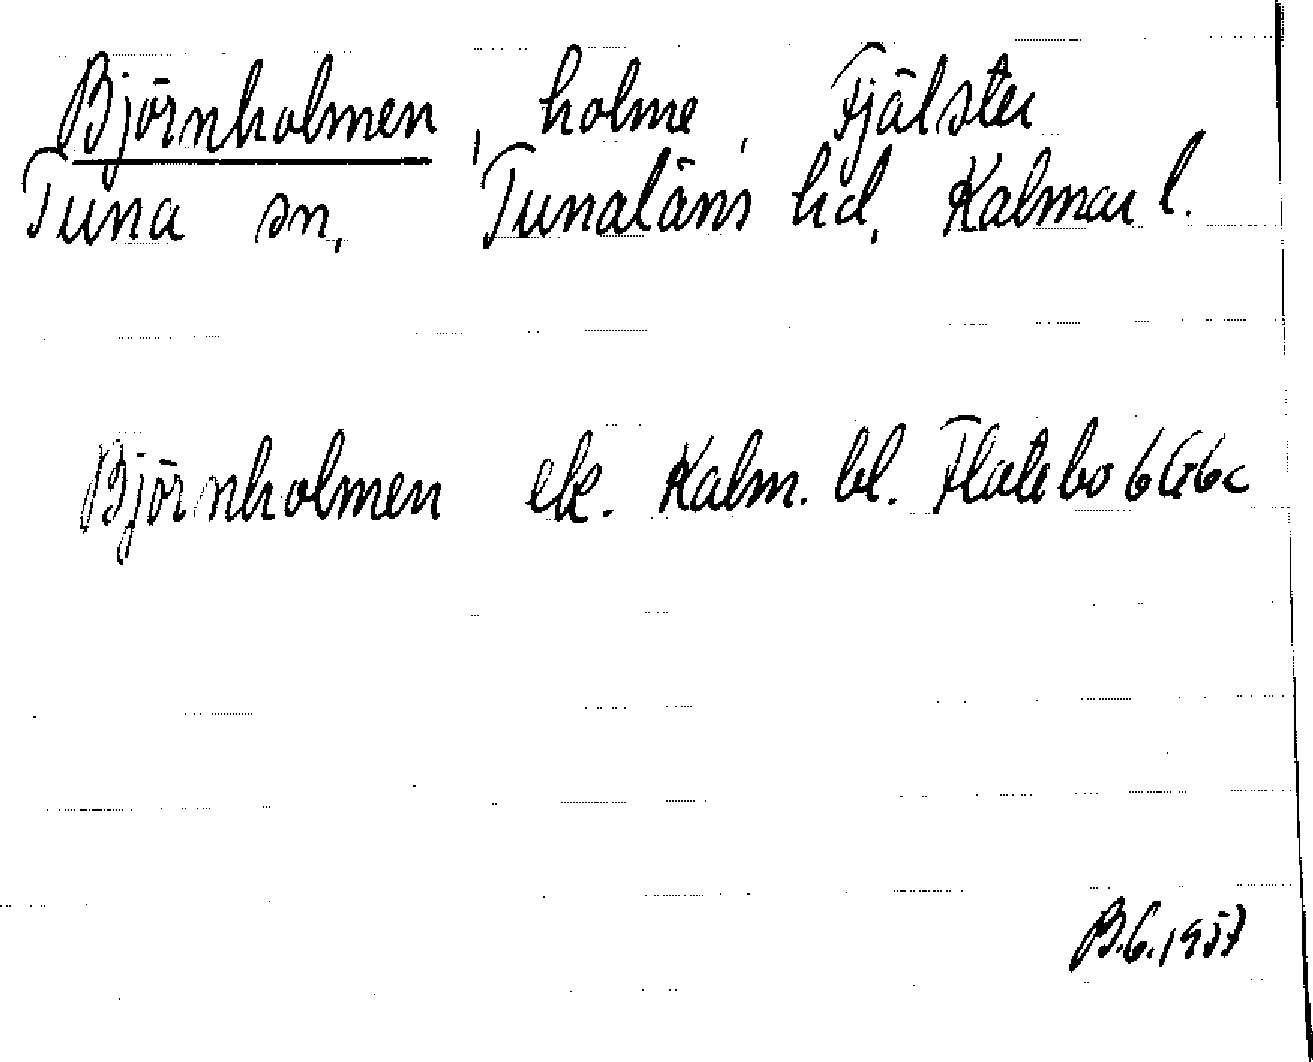 Björnholmen, holme, Fjälster
Tuna sn, Tunaläns hd, Kalmar l.
Björnholmen ek. Kalm. bl. Flatebo 6G6c
B.G. 1957